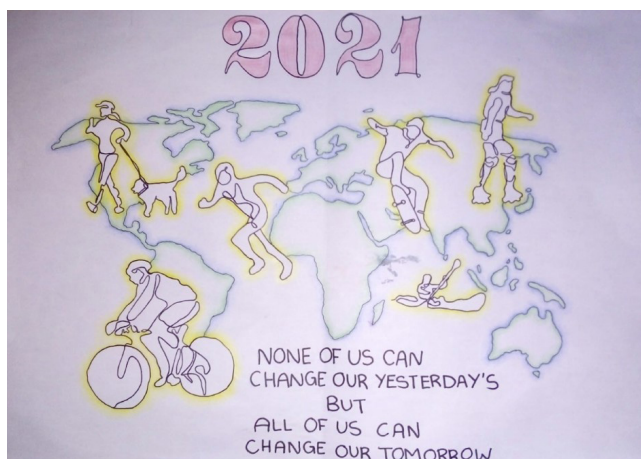 2021
NONE OF US CAN
CHANGE OUR YESTERDAY'S
BUT
ALL OF US CAN
CHANGE OUR TOMORROW